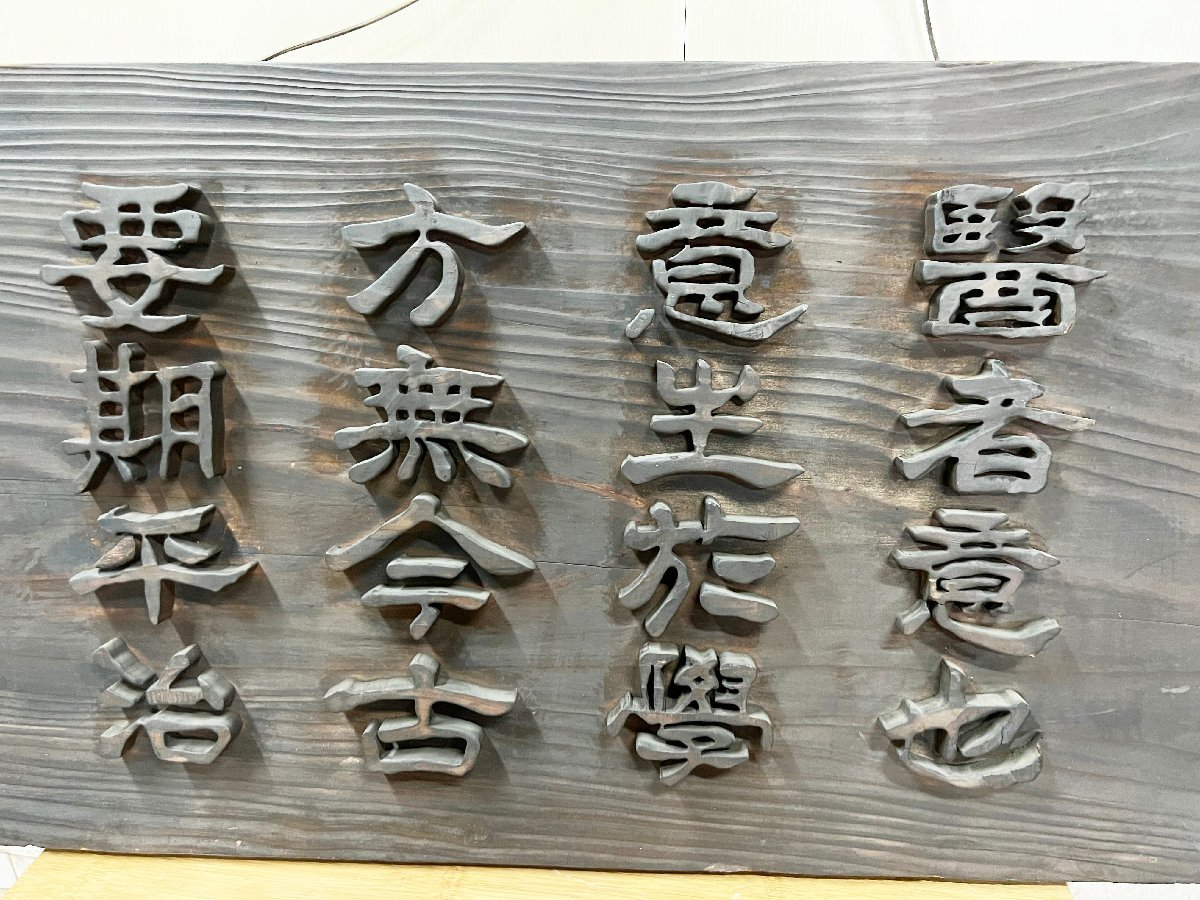 醫者意也
意生於學
方無今古
要期平治